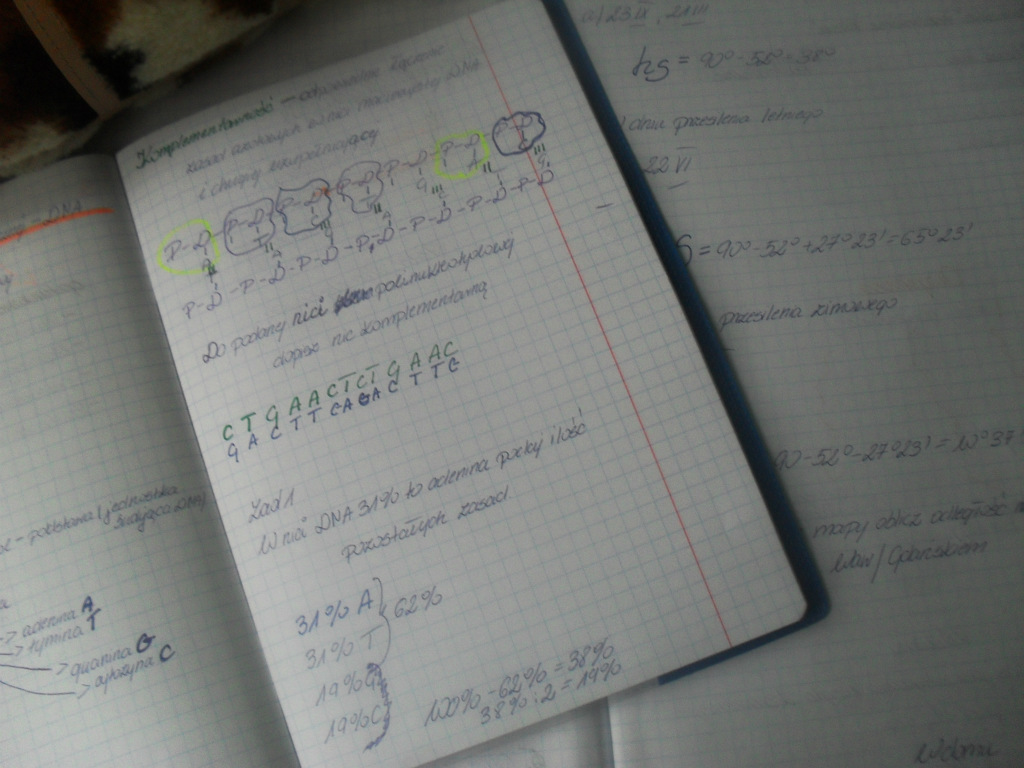 DNA
podstawowa jednostka
budująca DNA
-> adenina A
-> tymina T
-> guanina G
-> cytozyna C
Komplementarność - odpowiednie łączenie
zasad azotowych w nici macierzystej DNA
i drugiej uzupełniającej
P-D-P-D-P-D-P-D-P-D-P-D-P-D
P-D-P-D-P-D-P-D-P-D-P-D-P-D
Do podanej nici polinukleotydowej
dopisz nić komplementarną
C T G A A C T C T G A A C
G A C T T G A G A C T T G
Zad 1
W nici DNA 31% to adenina podaj ilość
pozostałych zasad.
31% A
31% T
62%
19% G
19% C
100% - 62% = 38%
38% : 2 = 19%
a) 23 IX, 21 III
hs = 90° - 52° = 38°
dniu przesilenia letniego
22 VI
S = 90° - 52° + 27° 23' = 65° 23'
przesilenia zimowego
90 - 52° - 27° 23' = 10° 37'
mapy oblicz odległość
Waw / Gdańskiem